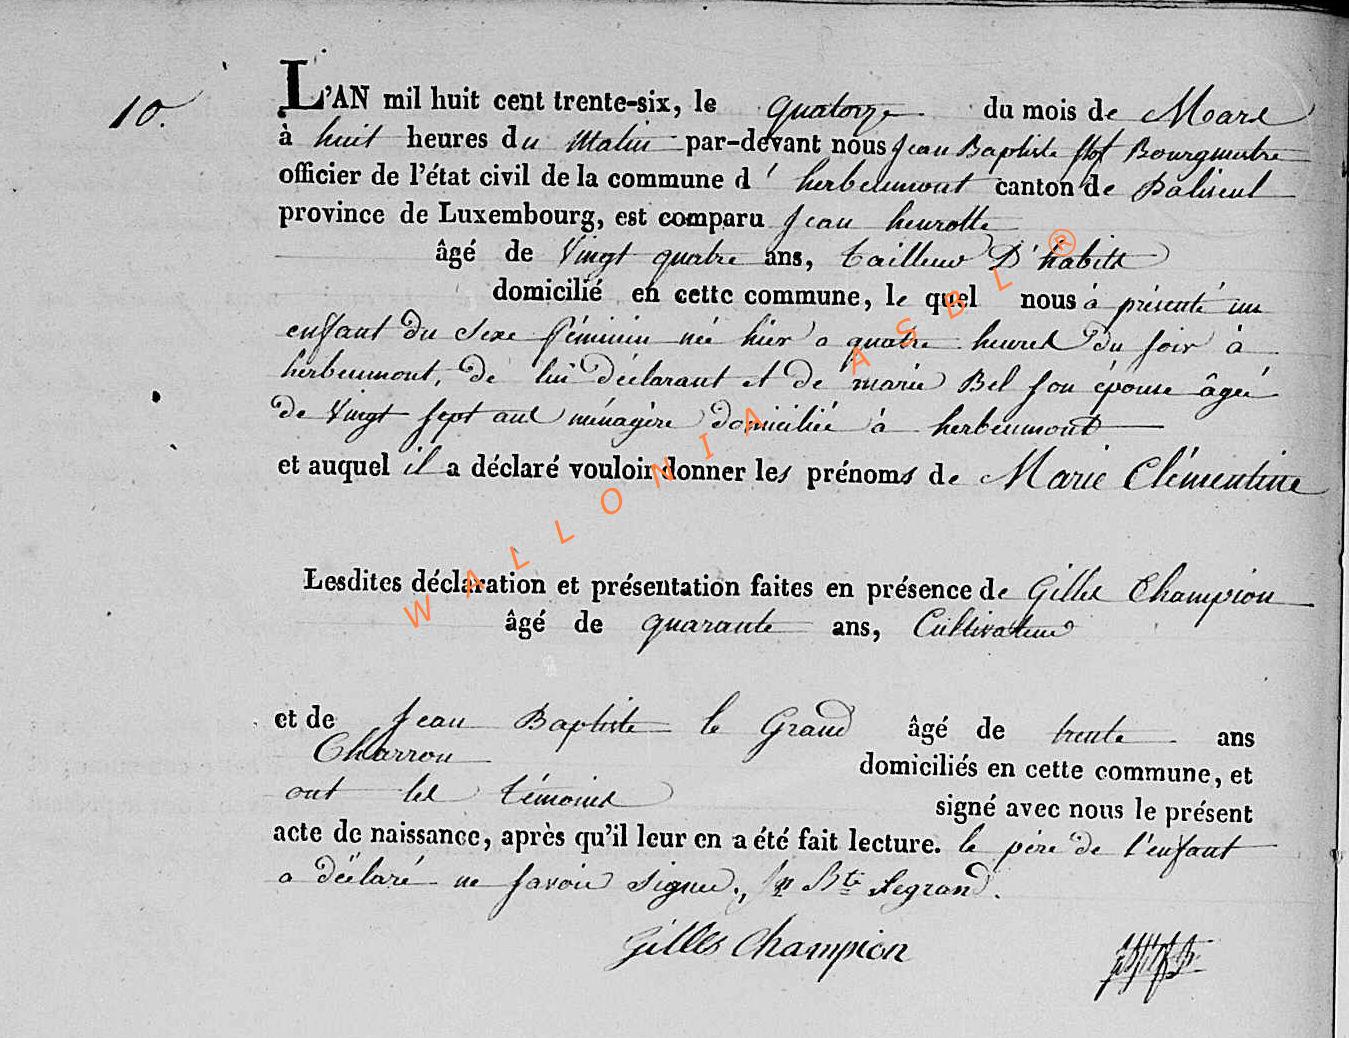 10.
L'AN mil huit cent trente-six, le quatorze du mois de Mars
à huit heures du Matin par-devant nous Jean Baptiste Bourgmestre
officier de l'état civil de la commune d' herbeumont canton de Paliseul
province de Luxembourg, est comparu Jean heurotte
âgé de Vingt quatre ans, tailleur D'habits
domicilié en cette commune, le quel nous à présenté un
enfant du Sexe féminin née hier a quatre heures Du soir à
herbeumont, de lui déclarant et de marie Bel son épouse âgée
de Vingt sept ans ménagère domiciliée à herbeumont
et auquel il a déclaré vouloir donner les prénoms de Marie Clémentine
Lesdites déclaration et présentation faites en présence de Gilles Champion
âgé de quarante ans, Cultivateur
et de Jean Baptiste le Grand âgé de trente ans
Charron
domiciliés en cette commune, et
ont les témoins signé avec nous le présent
acte de naissance, après qu'il leur en a été fait lecture. le père de l'enfant
a déclaré ne savoir signer. Jn Bte Legrand.
Gilles Champion
WALLONIA ASBL ®